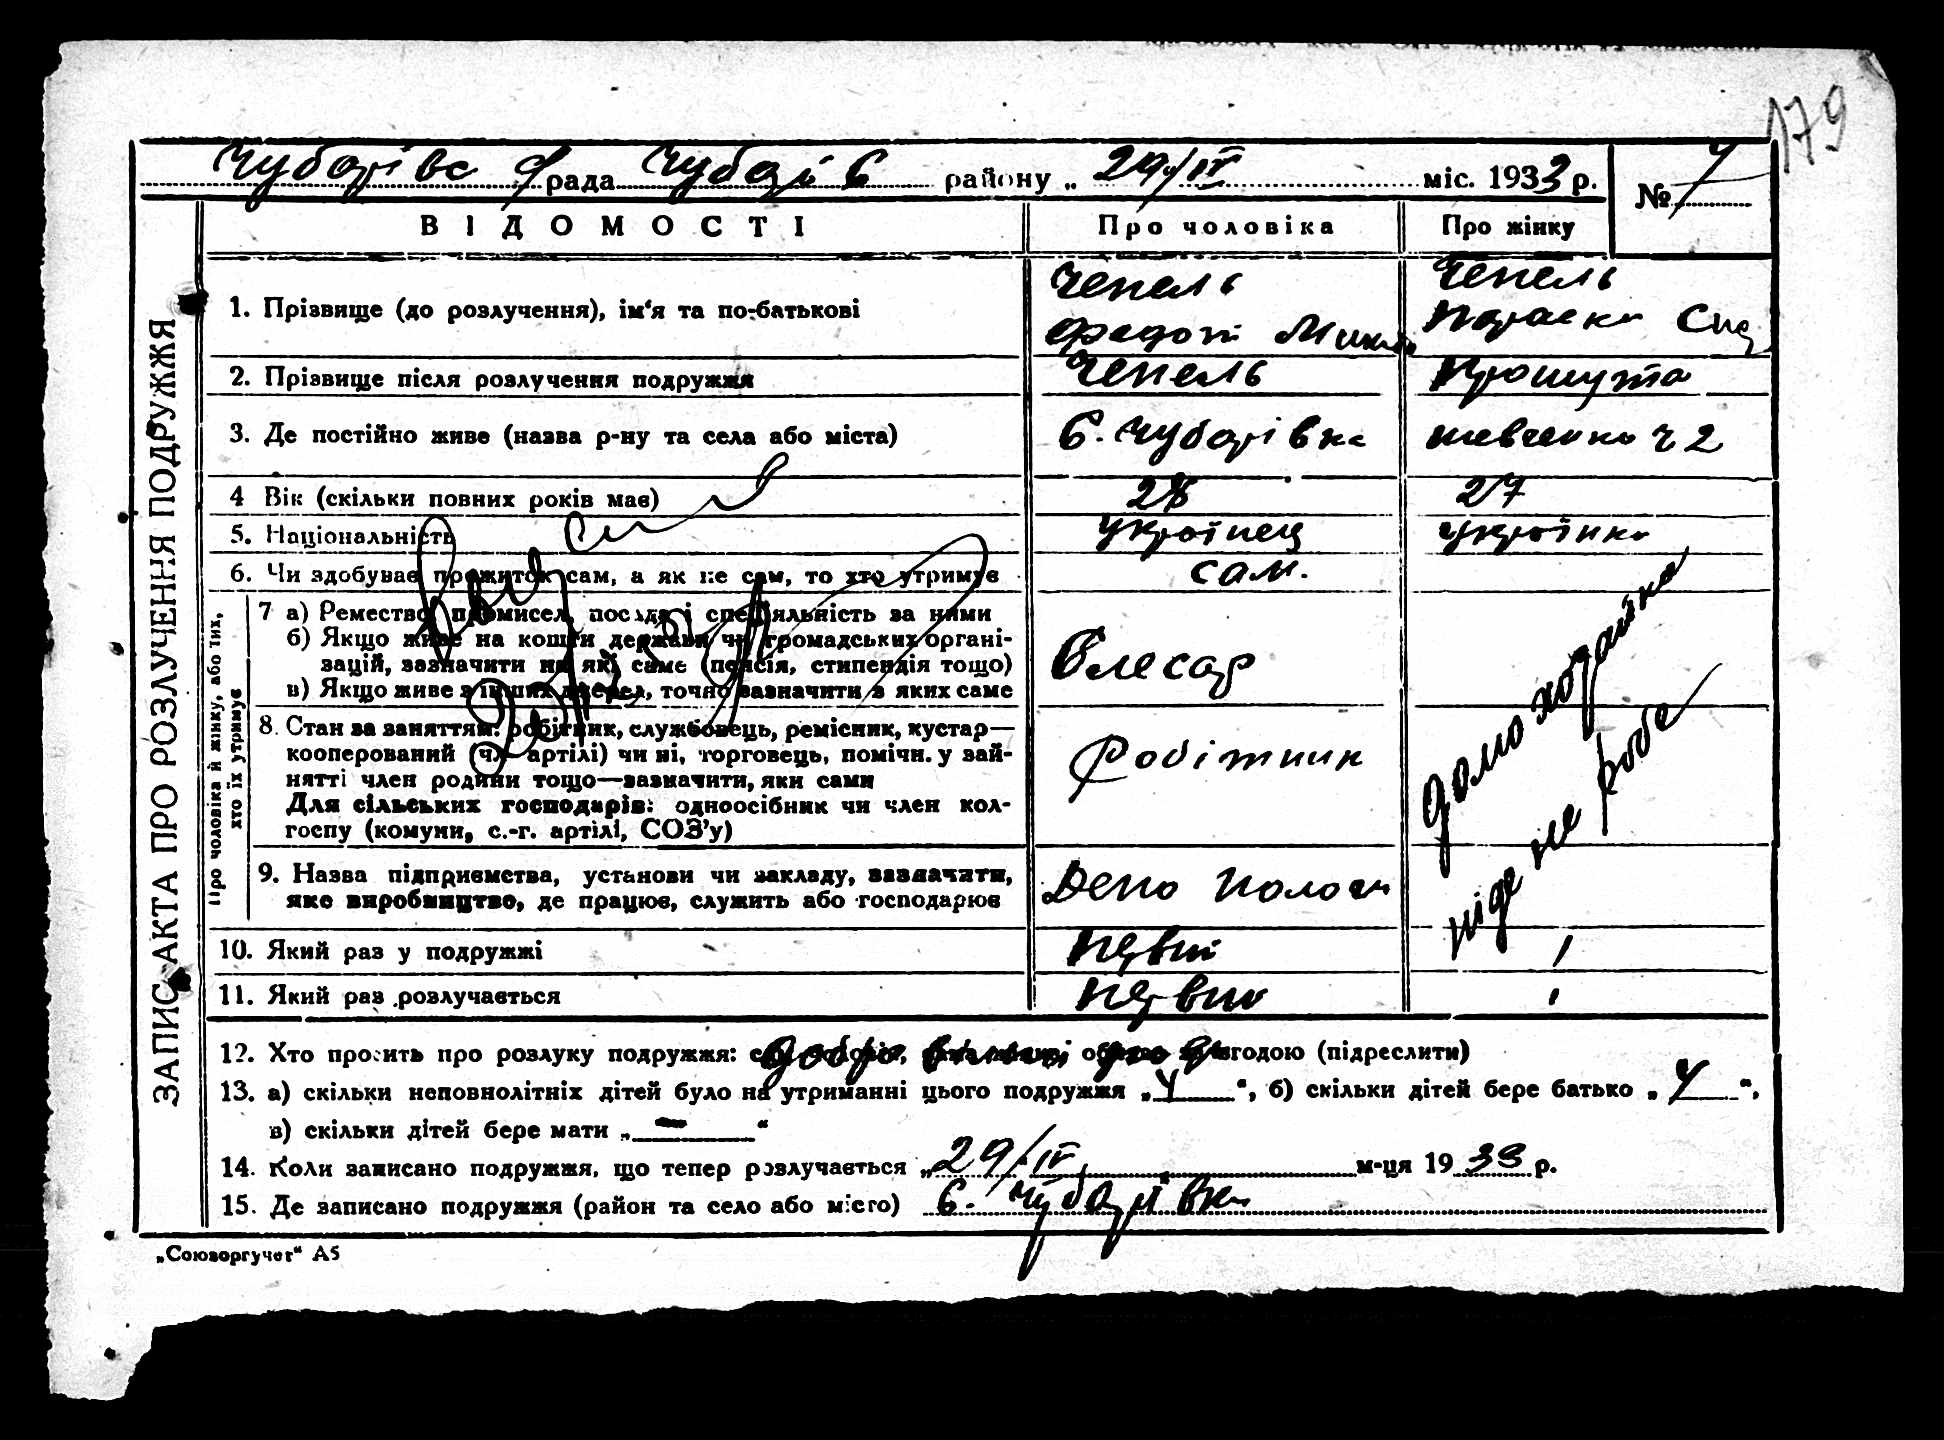 179
Чубарівс рада Чубарів району „ 29/IV міс. 1933 р.
№
ВІДОМОСТІ Про чоловіка Про жінку
ЗАПИС АКТА ПРО РОЗЛУЧЕННЯ ПОДРУЖЖЯ
1. Прізвище (до розлучення), ім'я та по-батькові
Чепель
Федот Мики
Чепель
Параска Сид
2. Прізвище після розлучення подружжя Чепель Прошута
3. Де постійно живе (назва р-ну та села або міста) С. Чубарівка Шевченка ч 2
4 Вік (скільки повних років має) 28 27
5. Національність українец українка
6. Чи здобуває прожиток сам, а як не сам, то хто утримує сам.
Про чоловіка й жінку, або тих,
хто їх утримує
7 а) Ремество, промисел, посада і спеціяльність за ними
б) Якщо живе на кошти держави чи громадських органі-
зацій, зазначити на які саме (пенсія, стипендія тощо)
в) Якщо живе з інших джерел, точно зазначити з яких саме
Слесар
домохозайка
ніде не робе
8. Стан за заняттям: робітник, службовець, ремісник, кустар—
кооперований (чл. артілі) чи ні, торговець, помічн. у зай-
нятті член родини тощо—зазначити, яки сами
Для сільських господарів: одноосібник чи член кол-
госпу (комуни, с.-г. артілі, СОЗ'у)
Робітник
9. Назва підприємства, установи чи закладу, зазначити,
яке виробництво, де працює, служить або господарює
Депо Пологи
10. Який раз у подружжі первий
11. Який раз розлучається первий
12. Хто просить про розлуку подружжя: згодою (підреслити)
13. а) скільки неповнолітніх дітей було на утриманні цього подружжя „ “, б) скільки дітей бере батько „ “,
в) скільки дітей бере мати „ — “
14. Коли записано подружжя, що тепер розлучається „ 29/IV м-ця 1933 р.
15. Де записано подружжя (район та село або місто) С. Чубарівка
„Союзоргучет“ А5